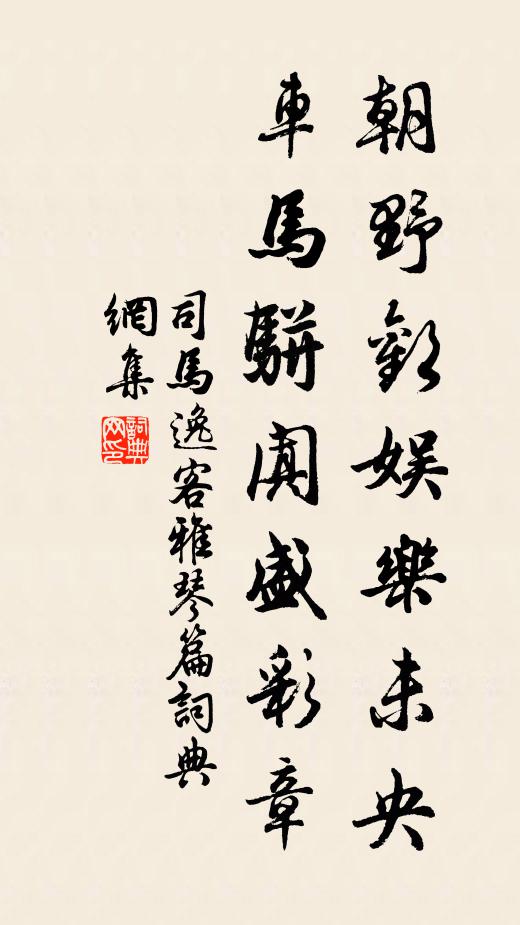 朝野歡娛樂未央
車馬駢闐盛彩章
司馬逸客雅琴篇詞典
網集
詞典
网印